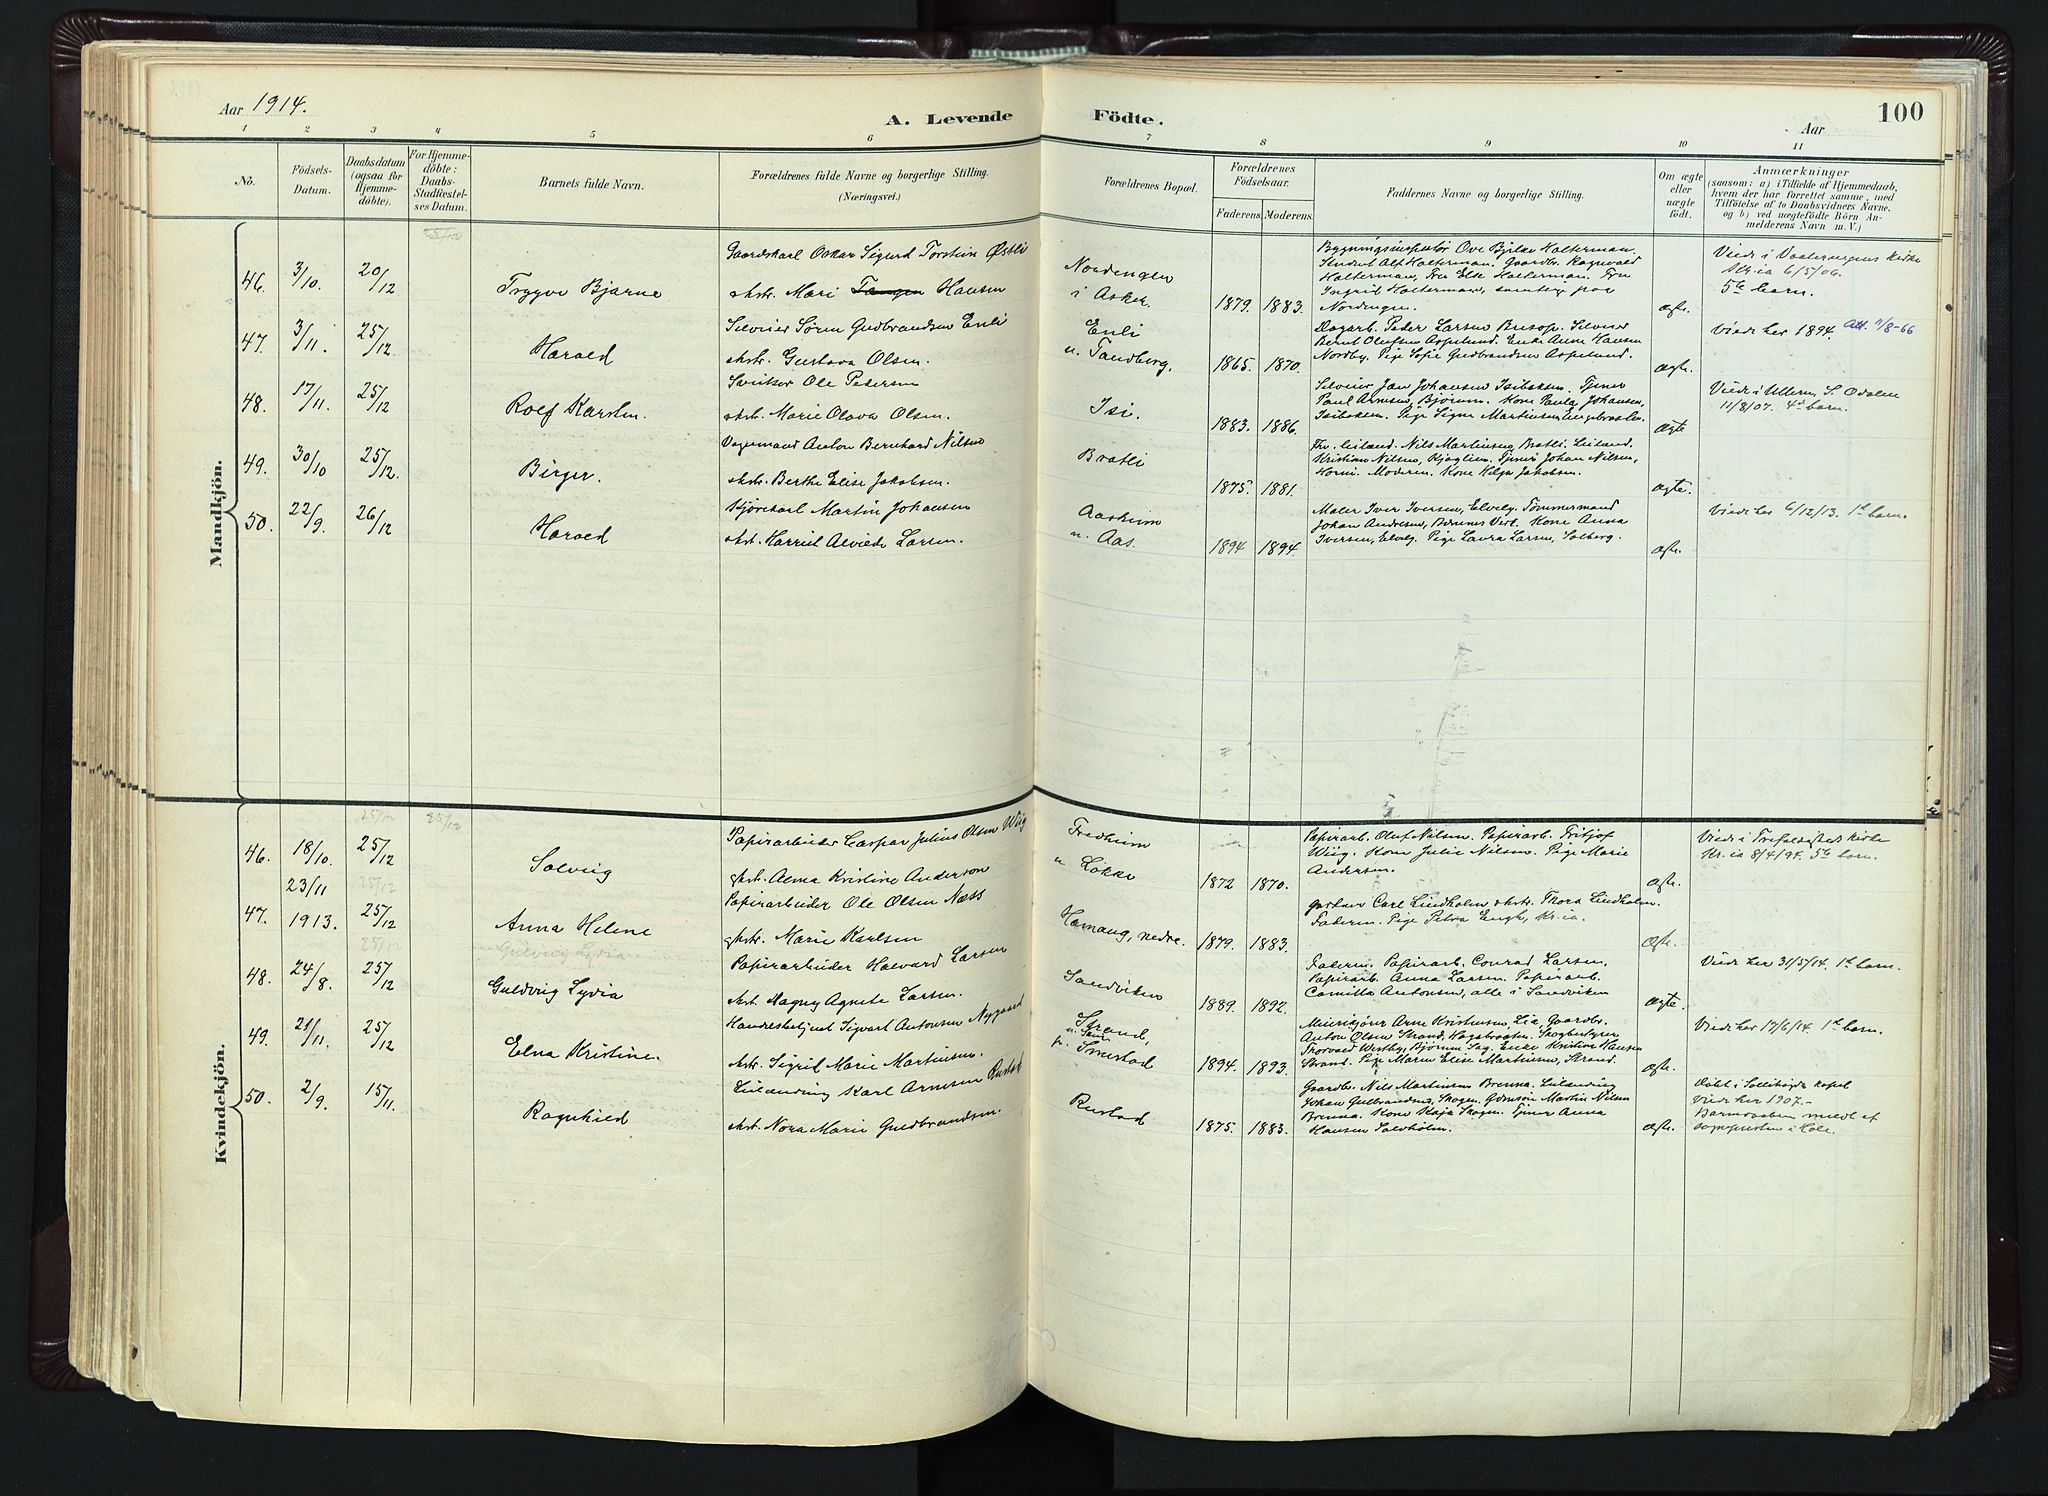 Aar 1914.
A. Levende Födte.
Aar
100
1 2 3 4 5 6 7 8 9 10 11
No.
Födsels-Datum.
Daabsdatum (ogsaa for Hjemme-döbte).
For Hjemme-döbte: Daabs-Stadfæstel-ses Datum.
Barnets fulde Navn.
Forældrenes fulde Navne og borgerlige Stilling.
(Næringsvei.)
Forældrenes Bopæl.
Forældrenes Födselsaar.
Faderens. Moderens.
Faddernes Navne og borgerlige Stilling.
Om ægte eller uægte födt.
Anmærkninger
(saasom: a) i Tilfælde af Hjemmedaab,
hvem der har forrettet samme, med
Tilföielse af to Daabsvidners Navne.
og b) ved uægtefödte Börn An-
melderens Navn m. V.)
Mandkjön.
25/12
46. 3/10. 20/12 Trygve Bjarne
Gaardskarl Oskar Sigurd Torstein Østli
Mari Tangen Hansen
Nordengen
i Asker.
1879. 1883.
Bygningsinspektör Ove Bjelke Holterman.
Student Alf Holterman. Gaardbr. Ragnvald
Holterman, Fru Else Holterman. Fru
Ingrid Holterman, samtlig paa
Nordengen.
ægte.
Viede i Vaalerengens kirke
Kr.ia 6/5/06.
5te barn.
47. 3/11. 25/12 Harald
Sliver Sören Gudbrandsen Enli
Gustava Olsen.
Enli
u. Tandberg.
1865. 1870.
Dagarb. Peder Larsen Burop. Sliver
Bernt Olufsen Aspelund. Enke Anne Hansen
Nordby. Pige Sofie Gudbrandsen Aspelund.
ægte.
Viede her 1894. Att. 11/8-66
48. 17/11. 25/12 Rolf Karsten.
Ole Pedersen
Marie Olava Olsen.
Isi.
1883. 1886.
Jan Johansen Isibakken. Tjener
Paul Arnesen, Bjørum. Kone Paula Johansen,
Isibakken. Pige Signe Martinsen
ægte
Viede i Ullern, S. Odalen
11/8/07. 4de barn.
49. 30/10 25/12. Birger.
Vognmand Anton Bernhard Nilsen
Berthe Elise Jakobsen.
Bratli
1875. 1881.
Nils Martinsen, Bratli. Leiland.
Kristian Nilsen, Kjaglien. Tjener Johan Nilsen,
Horni. Moderen. Kone Helga Jakobsen.
ægte.
50. 22/9. 26/12 Harald
Kjörekarl Martin Johansen
Harriet Alvilde Larsen.
Aasheim
u. Aas.
1894 1894.
Maler Iver Iversen, Elvely. Tömmermand
Johan Andresen, Bærums Verk. Kone Anna
Iversen, Elvely. Pige Laura Larsen, Solberg.
ægte.
Viede her 6/12/13. 1ste barn.
Kvindekjön.
25/12 25/12
46. 18/10. 25/12 Solveig
Papirarbeider Caspar Julius Olsen Wiig
Alma Kristine Anderson
Fredheim
u Løkke
1872 1870.
Papirarb. Oluf Nilsen. Papirarb. Fritjof
Wiig. Kone Julie Nilsen. Pige Marie
Andersen.
ægte.
Viede i Trefoldighedskirke
Kr.ia 8/4/94. 5te barn.
47. 23/11 1913. 25/12 25/12 Anna Helene
Papirarbeider Ole Olsen Næss
Marie Karlsen
Hamang, nedre.
1879. 1883.
Carl Lindholm Thora Lindholm.
Faderen. Pige Petra Engh, Kr.ia.
ægte.
25/12 Gulveig Lydia
48. 24/8. 25/12 Guldveig Lydia
Papirarbeider Halvard Larsen
Magny Agnete Larsen.
Sandviken
1889. 1892.
Faderen. Papirarb. Conrad Larsen.
Papirarb. Anna Larsen. Papirarb.
Camilla Antonsen, alle i Sandviken
ægte.
Viede her 31/5/14. 1ste barn.
49. 21/11. 25/12 Elna Kristine.
Handelsbetjent Sigvart Antonsen Nygaard
Sigrid Marie Martinsen.
Strand,
Smestad
1894. 1893.
Arne Kristensen, Lia. Gaardbr.
Anton Olsen Strand, Hagabraaten. Skogbestyrer
Thorvald Westby, Bjørum Sag. Enke Kristine Hansen
Strand. Pige Maren Elise Martinsen, Strand.
ægte.
Viede her 17/6/14. 1ste barn.
50. 2/9. 15/11. Ragnhild
Leilænding Karl Arnesen Rustad
Nora Marie Guldbrandsen.
Rustad
1875. 1883.
Gaardbr. Nils Martinsen Brenna. Leilænding
Johan Gulbrandsen, Skogen. Gdmsøn Martin Nilsen
Brenna. Kone Kaja Skogen. Tjener Anna
Hansen Solvholm.
ægte.
Døbt i Sollihøgda kapel
Viede her 1907.-
Barnedaaben meldt af
sognepresten i Hole.